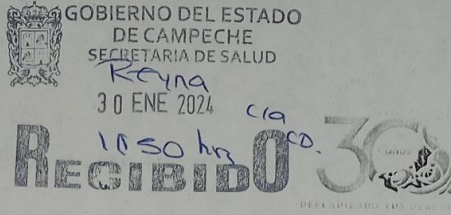 GOBIERNO DEL ESTADO
DE CAMPECHE
SECRETARIA DE SALUD
Reyna
30 ENE 2024
c/a
1150 hrs
CD.
RECIBIDO
30
AÑOS